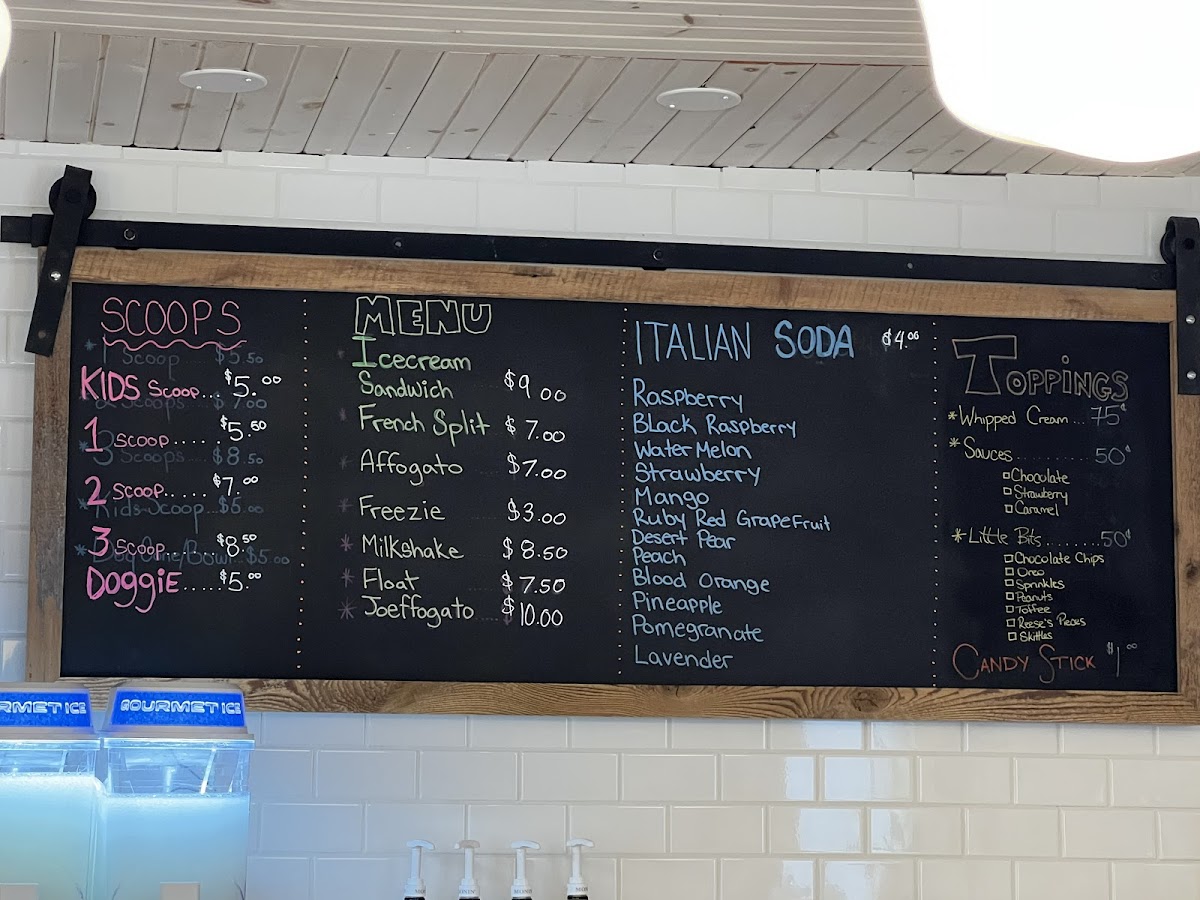 SCOOPS
* 1 Scoop $5.50
KIDS SCOOP... $5.00
2 Scoops $7.00
1 SCOOP..... $5.50
* 3 Scoops $8.50
2 SCOOP..... $7.00
* Kids Scoop $5.00
3 SCOOP....... $8.50
* Dog Cone/Bowl $5.00
DOGGiE..... $5.00
MENU
Icecream
Sandwich $9.00
* French Split $7.00
* Affogato $7.00
* Freezie $3.00
* Milkshake $8.50
* Float $7.50
* Joeffogato $10.00
ITALIAN SODA $4.00
Raspberry
Black Raspberry
Water Melon
Strawberry
Mango
Ruby Red GrapeFruit
Desert Pear
Peach
Blood Orange
Pineapple
Pomegranate
Lavender
TOPPINGS
*Whipped Cream... 75¢
*Sauces.......... 50¢
Chocolate
Strawberry
Caramel
*Little Bits....... 50¢
Chocolate Chips
Oreo
Sprinkles
Peanuts
Toffee
Reese's Pieces
Skittles
CANDY STICK $1.00
RMET ICE
GOURMET ICE